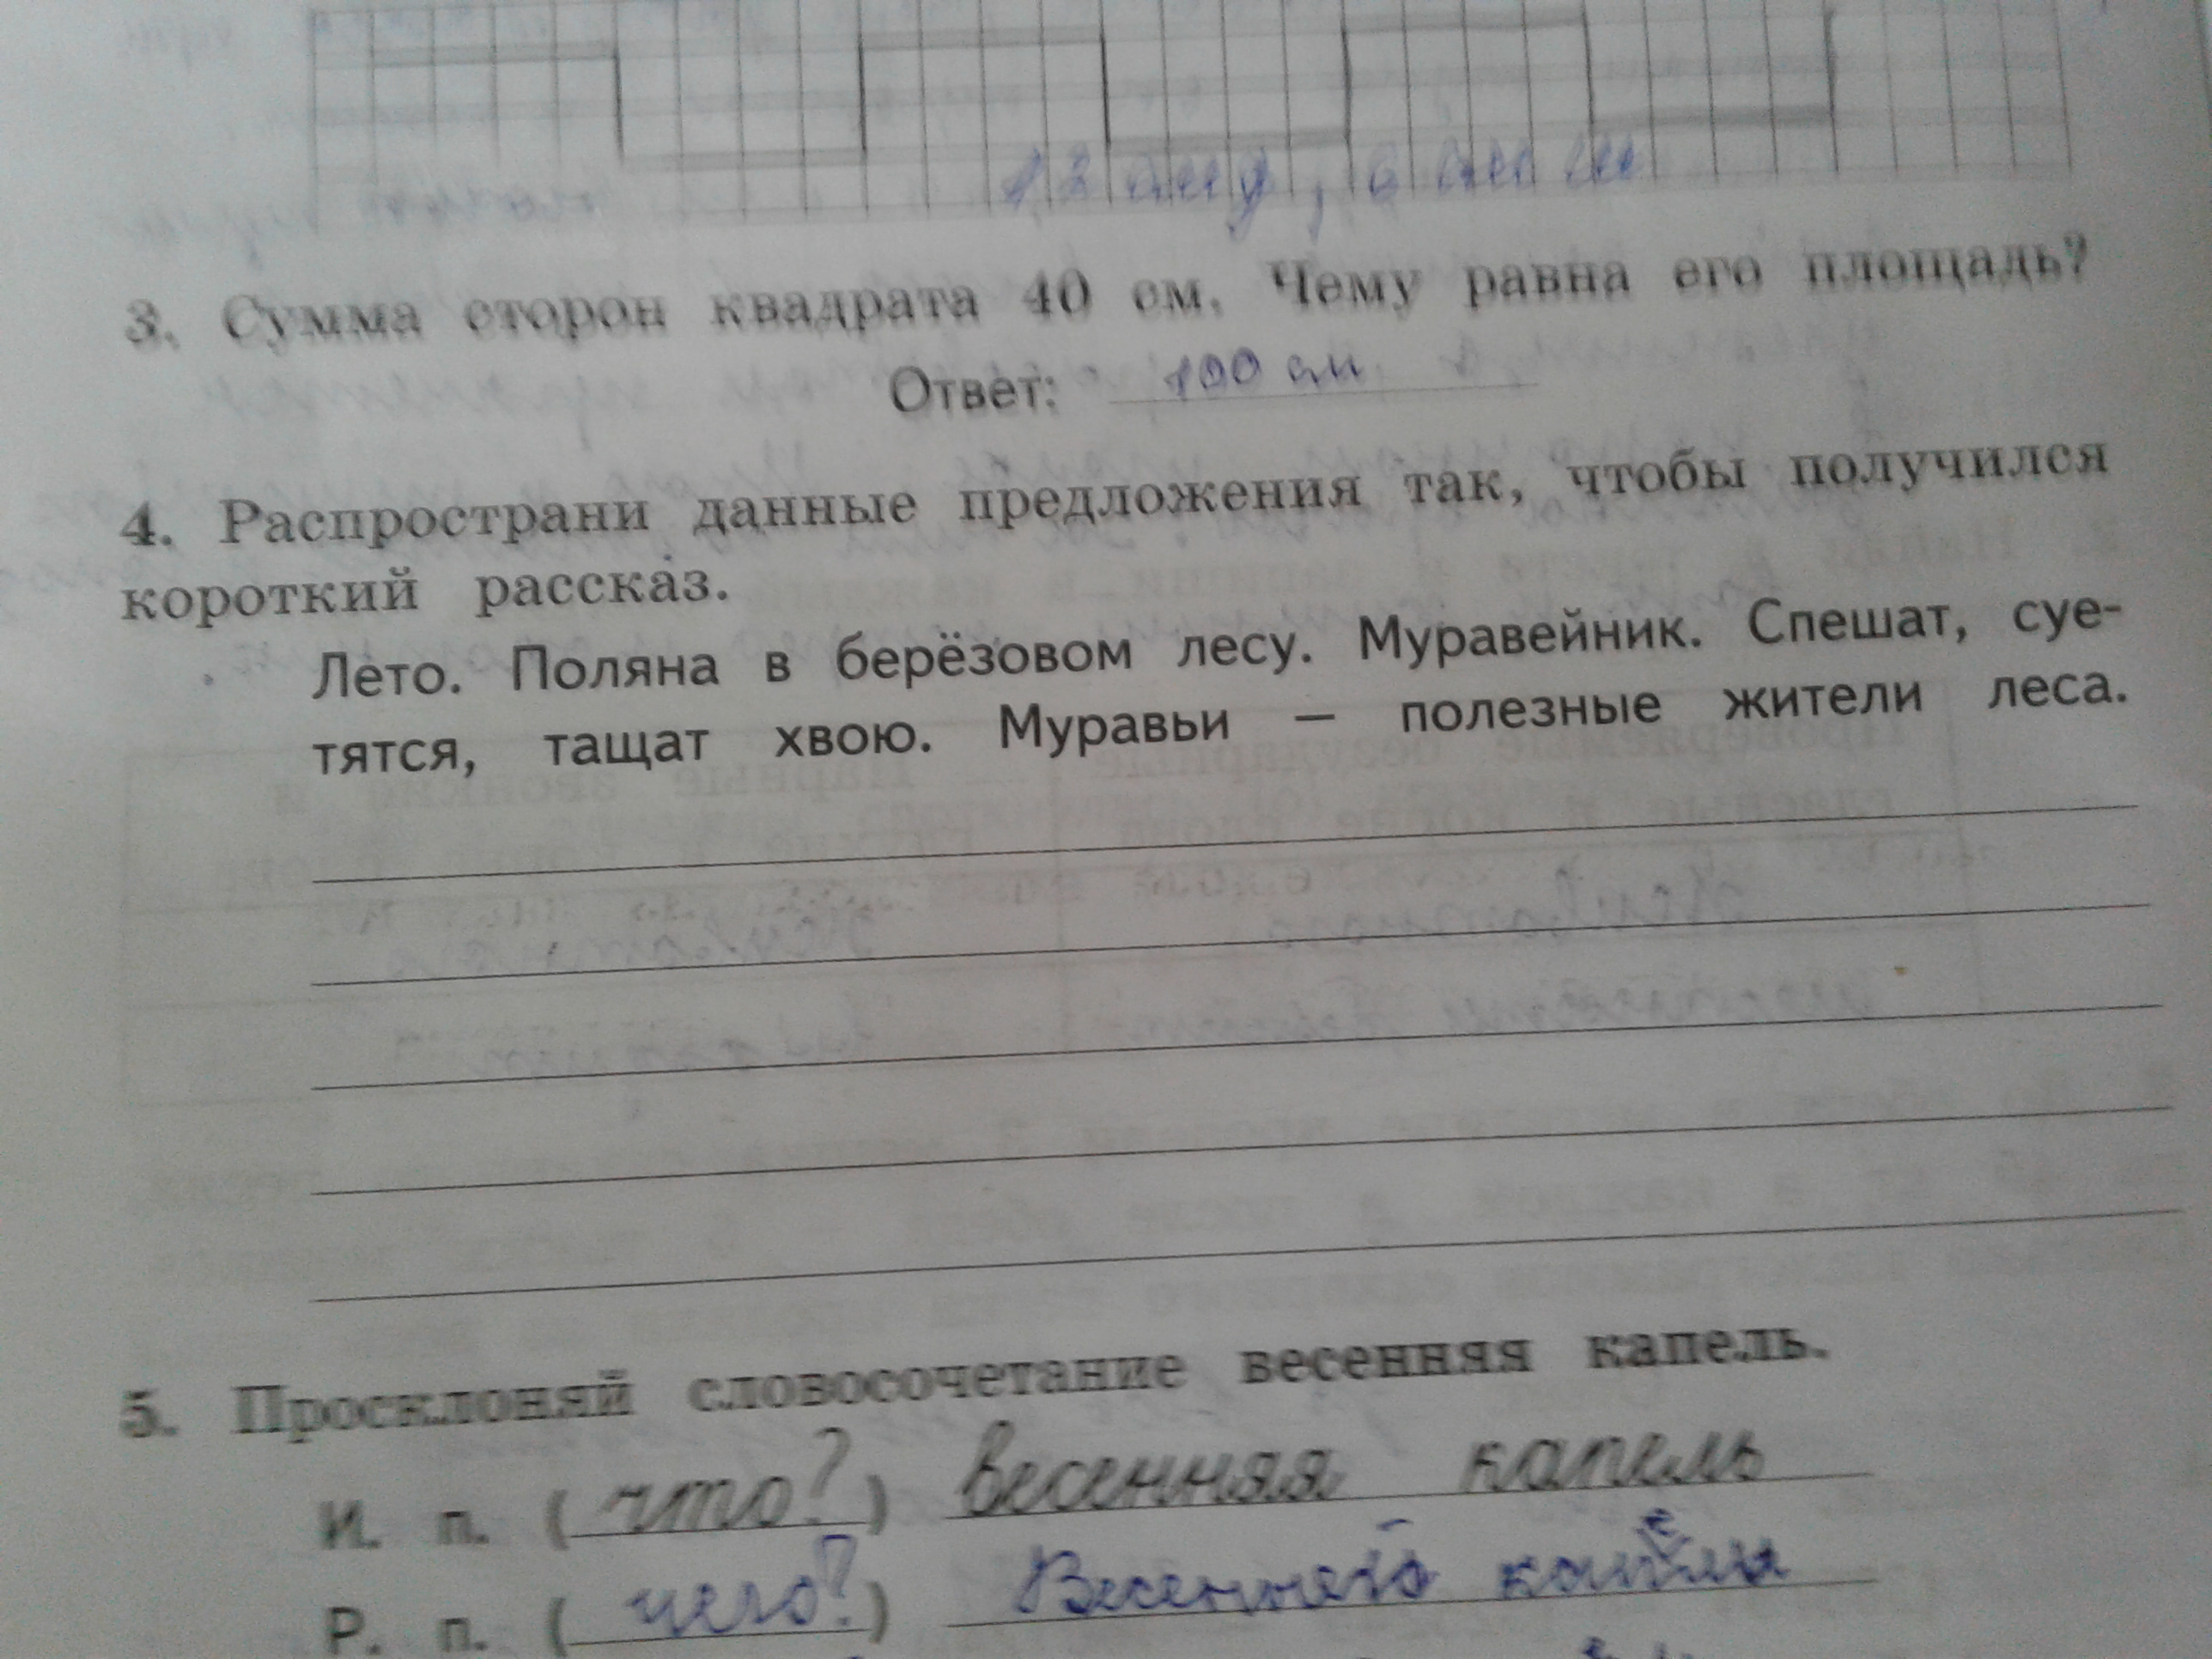 3. Сумма сторон квадрата 40 см. Чему равна его площадь?
Ответ: 100 см
4. Распространи данные предложения так, чтобы получился
короткий рассказ.
Лето. Поляна в берёзовом лесу. Муравейник. Спешат, суе-
тятся, тащат хвою. Муравьи — полезные жители леса.
5. Просклоняй словосочетание весенняя капель.
И. п. (что?) весенняя капель
Р. п. (чего?) Весенней